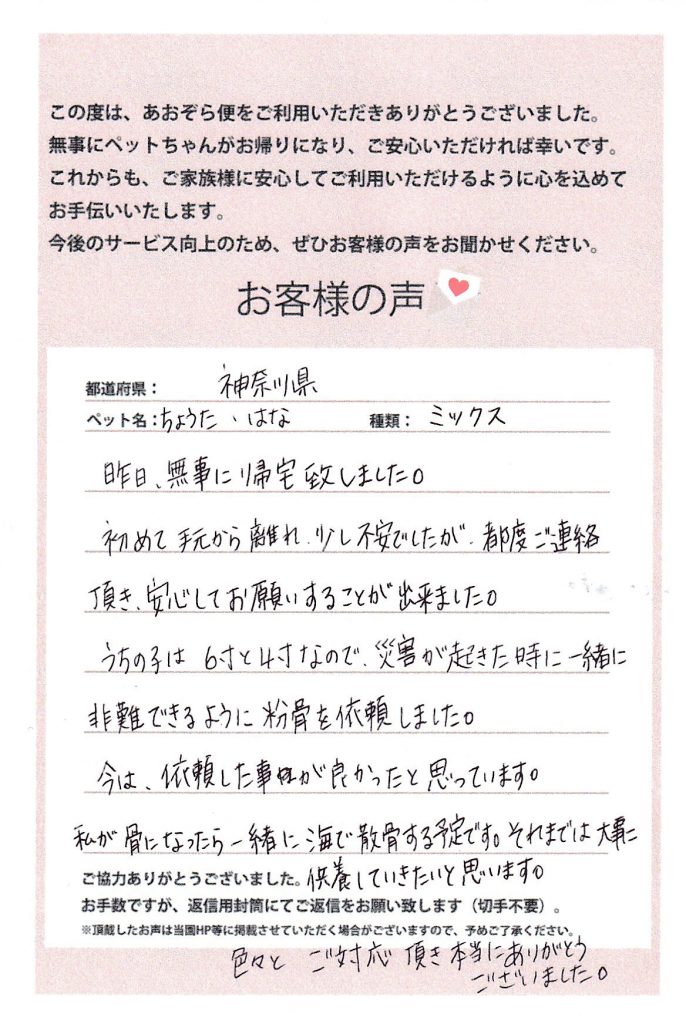 この度は、あおぞら便をご利用いただきありがとうございました。
無事にペットちゃんがお帰りになり、ご安心いただければ幸いです。
これからも、ご家族様に安心してご利用いただけるように心を込めて
お手伝いいたします。
今後のサービス向上のため、ぜひお客様の声をお聞かせください。
お客様の声
都道府県： 神奈川県
ペット名：ちょうた、はな 種類： ミックス
昨日、無事に帰宅致しました。
初めて手元から離れ、少し不安でしたが、都度ご連絡
頂き、安心してお願いすることが出来ました。
うちの子は 6寸と4寸なので、災害が起きた時に一緒に
非難できるように粉骨を依頼しました。
今は、依頼した事が良かったと思っています。
私が骨になったら一緒に海で散骨する予定です。それまでは大事に
ご協力ありがとうございました。供養していきたいと思います。
お手数ですが、返信用封筒にてご返信をお願い致します（切手不要）。
※頂戴したお声は当園HP等に掲載させていただく場合がございますので、予めご了承ください。
色々と ご対応 頂き本当にありがとう
ございました。